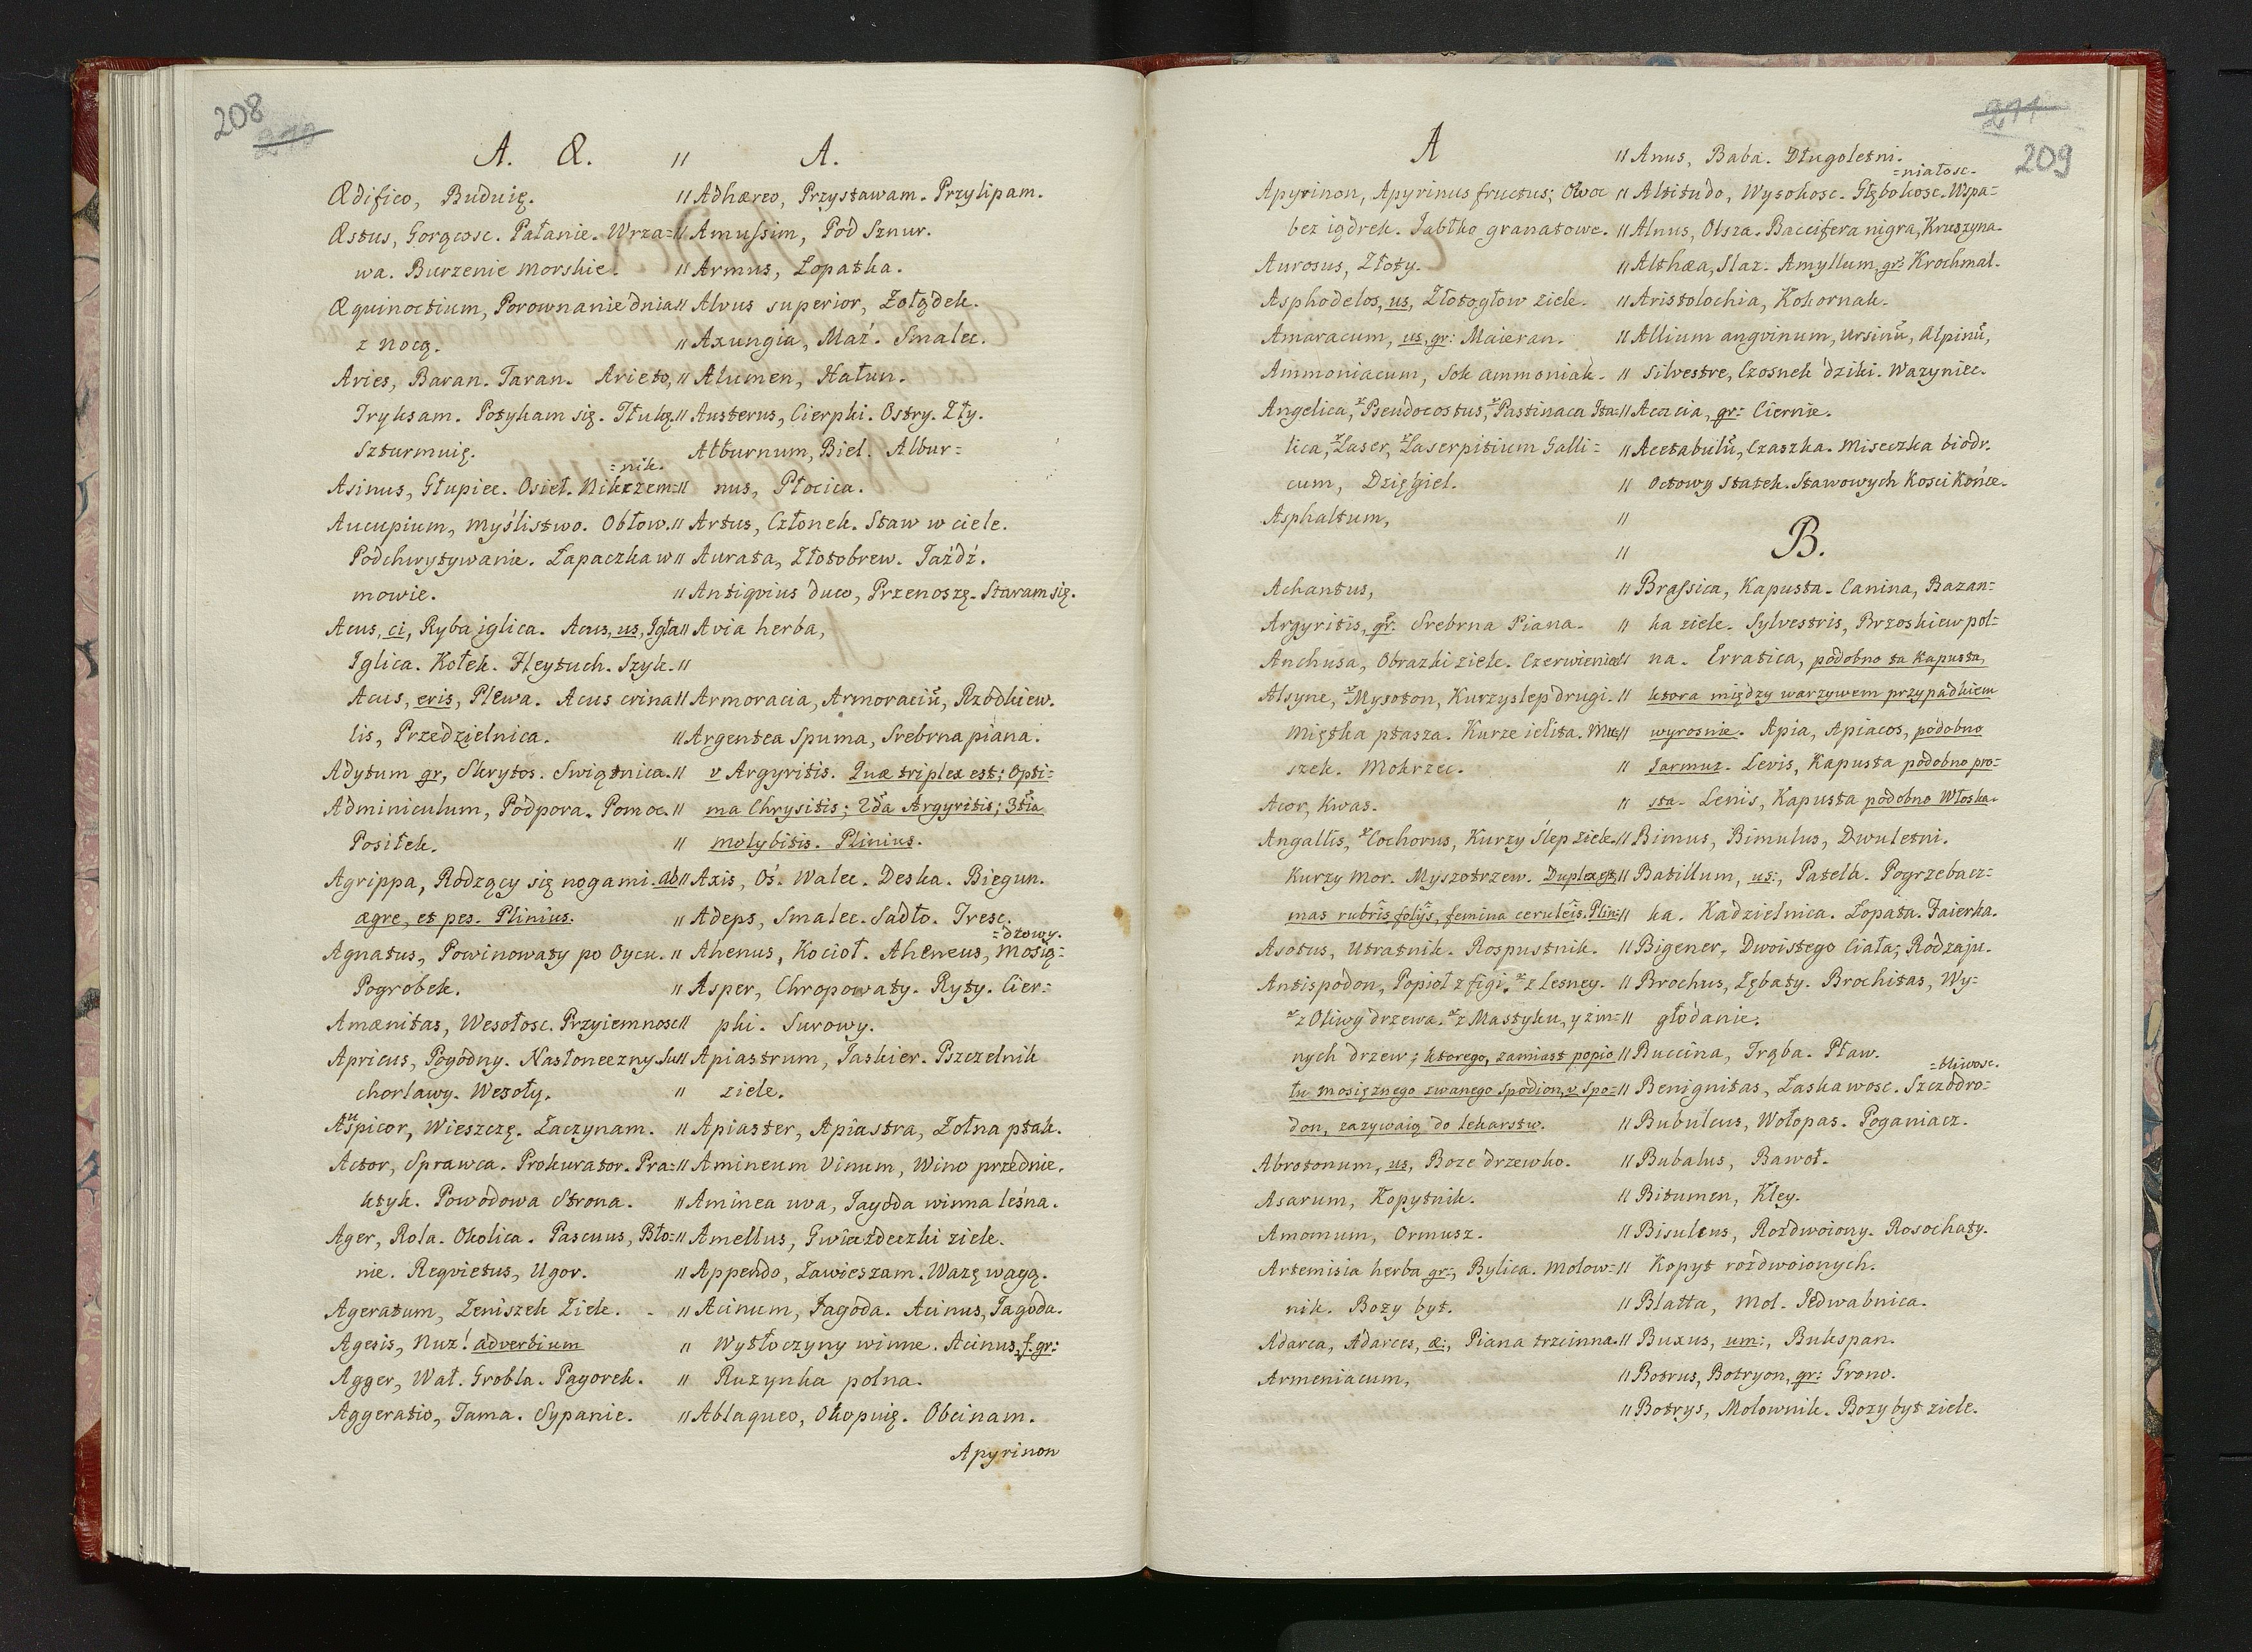 208
210
A. Æ. " A.
Ædifico, Buduię.
Æstus, Gorącosc. Pałanie. Wrza=
wa. Burzenie morskie.
Æquinoctium, Porownanie dnia
z nocą.
Aries, Baran. Taran. Arieto,
Tryksam. Potykam się. Tłukę.
Szturmuię.
=nik.
Asinus, Głupiec. Osieł. Nikczem=
Aucupium, Myślistwo. Obłow.
Podchwytywanie. Łapaczka w
mowie.
Acus, ci, Ryba iglica. Acus, us, Igła
Iglica. Kołek. Fleytuch. Szyk.
Acus, eris, Plewa. Acus crina
lis, Przedzielnica.
Adytum gr, Skrytos. Swiątnica.
Adminiculum, Podpora. Pomoc.
Positek.
Agrippa, Rodzący się nogami. ab
ægre, et pes. Plinius.
Agnatus, Powinowaty po Oycu.
Pogrobek.
Amænitas, Wesołosc. Przyiemnosc
Apricus, Pogodny. Nasłoneczny. Su
chorlawy. Wesoły.
Auspicor, Wieszczę. Zaczynam.
Actor, Sprawca. Prokurator. Pra=
ktyk. Powodowa Strona.
Ager, Rola. Okolica. Pascuus, Bło=
nie. Reqvietus, Ugor.
Ageratum, Zeniszek Ziele.
Agesis, Nuz! adverbium
Agger, Wał. Grobla. Pagorek.
Aggeratio, Tama. Sypanie.
" Adhæreo, Przystawam. Przylipam.
" Amussim, Pod Sznur.
" Armus, Łopatka.
" Alvus superior, Zołądek.
" Axungia, Maź. Smalec.
" Alumen, Hałun.
" Austerus, Cierpki. Ostry. Zły.
Alburnum, Biel. Albur=
nus, Płocica.
" Artus, Członek. Staw w ciele.
" Aurata, Złotobrew. Jaźdź.
" Antiqvius duco, Przenoszę. Staram się.
" Avia herba,
"
" Armoracia, Armoraciũ, Rzodkiew.
" Argentea Spuma, Srebrna piana.
" v Argyritis. Quæ triplex est; Opti=
" ma Chrysitis; 2da Argyritis; 3tia
" molybitis. Plinius.
" Axis, Oś. Walec. Deska. Biegun.
" Adeps, Smalec. Sadło. Tresc.
=dzowy.
" Ahenus, Kocioł. Aheneus, Mosią=
" Asper, Chropowaty. Ryty. Cier=
" pki. Surowy.
" Apiastrum, Jaskier. Pszczelnik
" ziele.
" Apiaster, Apiastra, Zołna ptak.
" Amineum Vinum, Wino przednie.
" Aminea uva, Jagoda winna leśna.
" Amellus, Gwiazdeczki ziele.
" Appendo, Zawieszam. Wazę wagą.
" Acinum, Jagoda. Acinus, Jagoda.
" Wytłoczyny winne. Acinus, f. gr:
" Ruzynka polna.
" Ablaqueo, Okopuię. Obcinam.
Apyrinon
211
209
A
Apyrinon, Apyrinus fructus; Owoc
bez iądrek. Jabłko granatowe.
Aurosus, Złoty.
Asphodelos, us, Złotogłow ziele.
Amaracum, us, gr: Maieran.
Ammoniacum, Sok ammoniak.
Angelica, *Pseudocostus, *Pastinaca Ita=
lica, *Laser, *Laserpitium Galli=
cum, Dzięgiel.
Asphaltum,
Achantus,
Argyritis, gr: Srebrna Piana.
Anchusa, Obrazki ziele. Czerwienica
Alsyne, *Mysoton, Kurzyslep drugi.
Miętka ptasza. Kurze ielita. Mu
szek. Mokrzec.
Acor, Kwas.
Angallis, *Cochorus, Kurzy Ślep ziele.
Kurzy mor. Myszotrzew. Duplex est,
mas rubris folÿs, femina ceruleis. Plin:
Asotus, Utratnik. Rospustnik.
Antispodon, Popioł z figi. *z Lesney.
*z Oliwy drzewa. *z Mastyku, y z in=
nych drzew; ktorego, zamiast popio
łu mosięznego zwanego Spodion, v Spo=
don, zazywaią do lekarstw.
Abrotonum, us, Boze drzewko.
Asarum, Kopytnik.
Amomum, Ormusz.
Artemisia herba gr:, Bylica. Molow=
nik. Bozy byt.
Adarca, Adarces, æ:, Piana trzcinna.
Armeniacum,
" Anus, Baba. Długoletni.
=niałosc.
" Altitudo, Wysokosc. Głębokosc. Wspa=
" Alnus, Olsza. Baccifera nigra, Kruszyna.
" Althæa, Slaz. Amyllum, gr: Krochmal.
" Aristolochia, Kokornak.
" Allium angvinum, Ursinũ, Alpinũ,
" Silvestre, Czosnek dziki. Wazyniec.
" Acacia, gr: Ciernie.
" Acetabulũ, Czaszka. Miseczka biodr.
" Octowy statek. Stawowych Kosci Końce.
"
" B.
" Brassica, Kapusta. Canina, Bazan=
" ka ziele. Sylvestris, Brzoskiew pol=
" na. Erratica, podobno ta Kapusta,
" ktora między warzywem przypadkiem
" wyrosnie. Apia, Apiacos, podobno
" Jarmuz. Levis, Kapusta podobno pro=
" sta. Lenis, Kapusta podobno Włoska.
" Bimus, Bimulus, Dwuletni.
" Batillum, us:, Patella. Pogrzebacz=
" ka. Kadzielnica. Łopata. Faierka.
" Bigener, Dwoistego Ciała; Rodzaju.
" Brochus, Zębaty. Brochitas, Wy=
" głodanie.
" Buccina, Trąba. Pław.
=bliwosc.
" Benignitas, Łaskawosc. Szczodro=
" Bubulcus, Wołopas. Poganiacz.
" Bubalus, Bawoł.
" Bitumen, Kley.
" Bisulcus, Rozdwoiony. Rosochaty.
" Kopyt rozdwoionych.
" Blatta, Mol. Jedwabnica.
" Buxus, um:, Bukspan.
" Botrus, Botryon, gr: Grono.
" Botrys, Molownik. Bozy byt ziele.